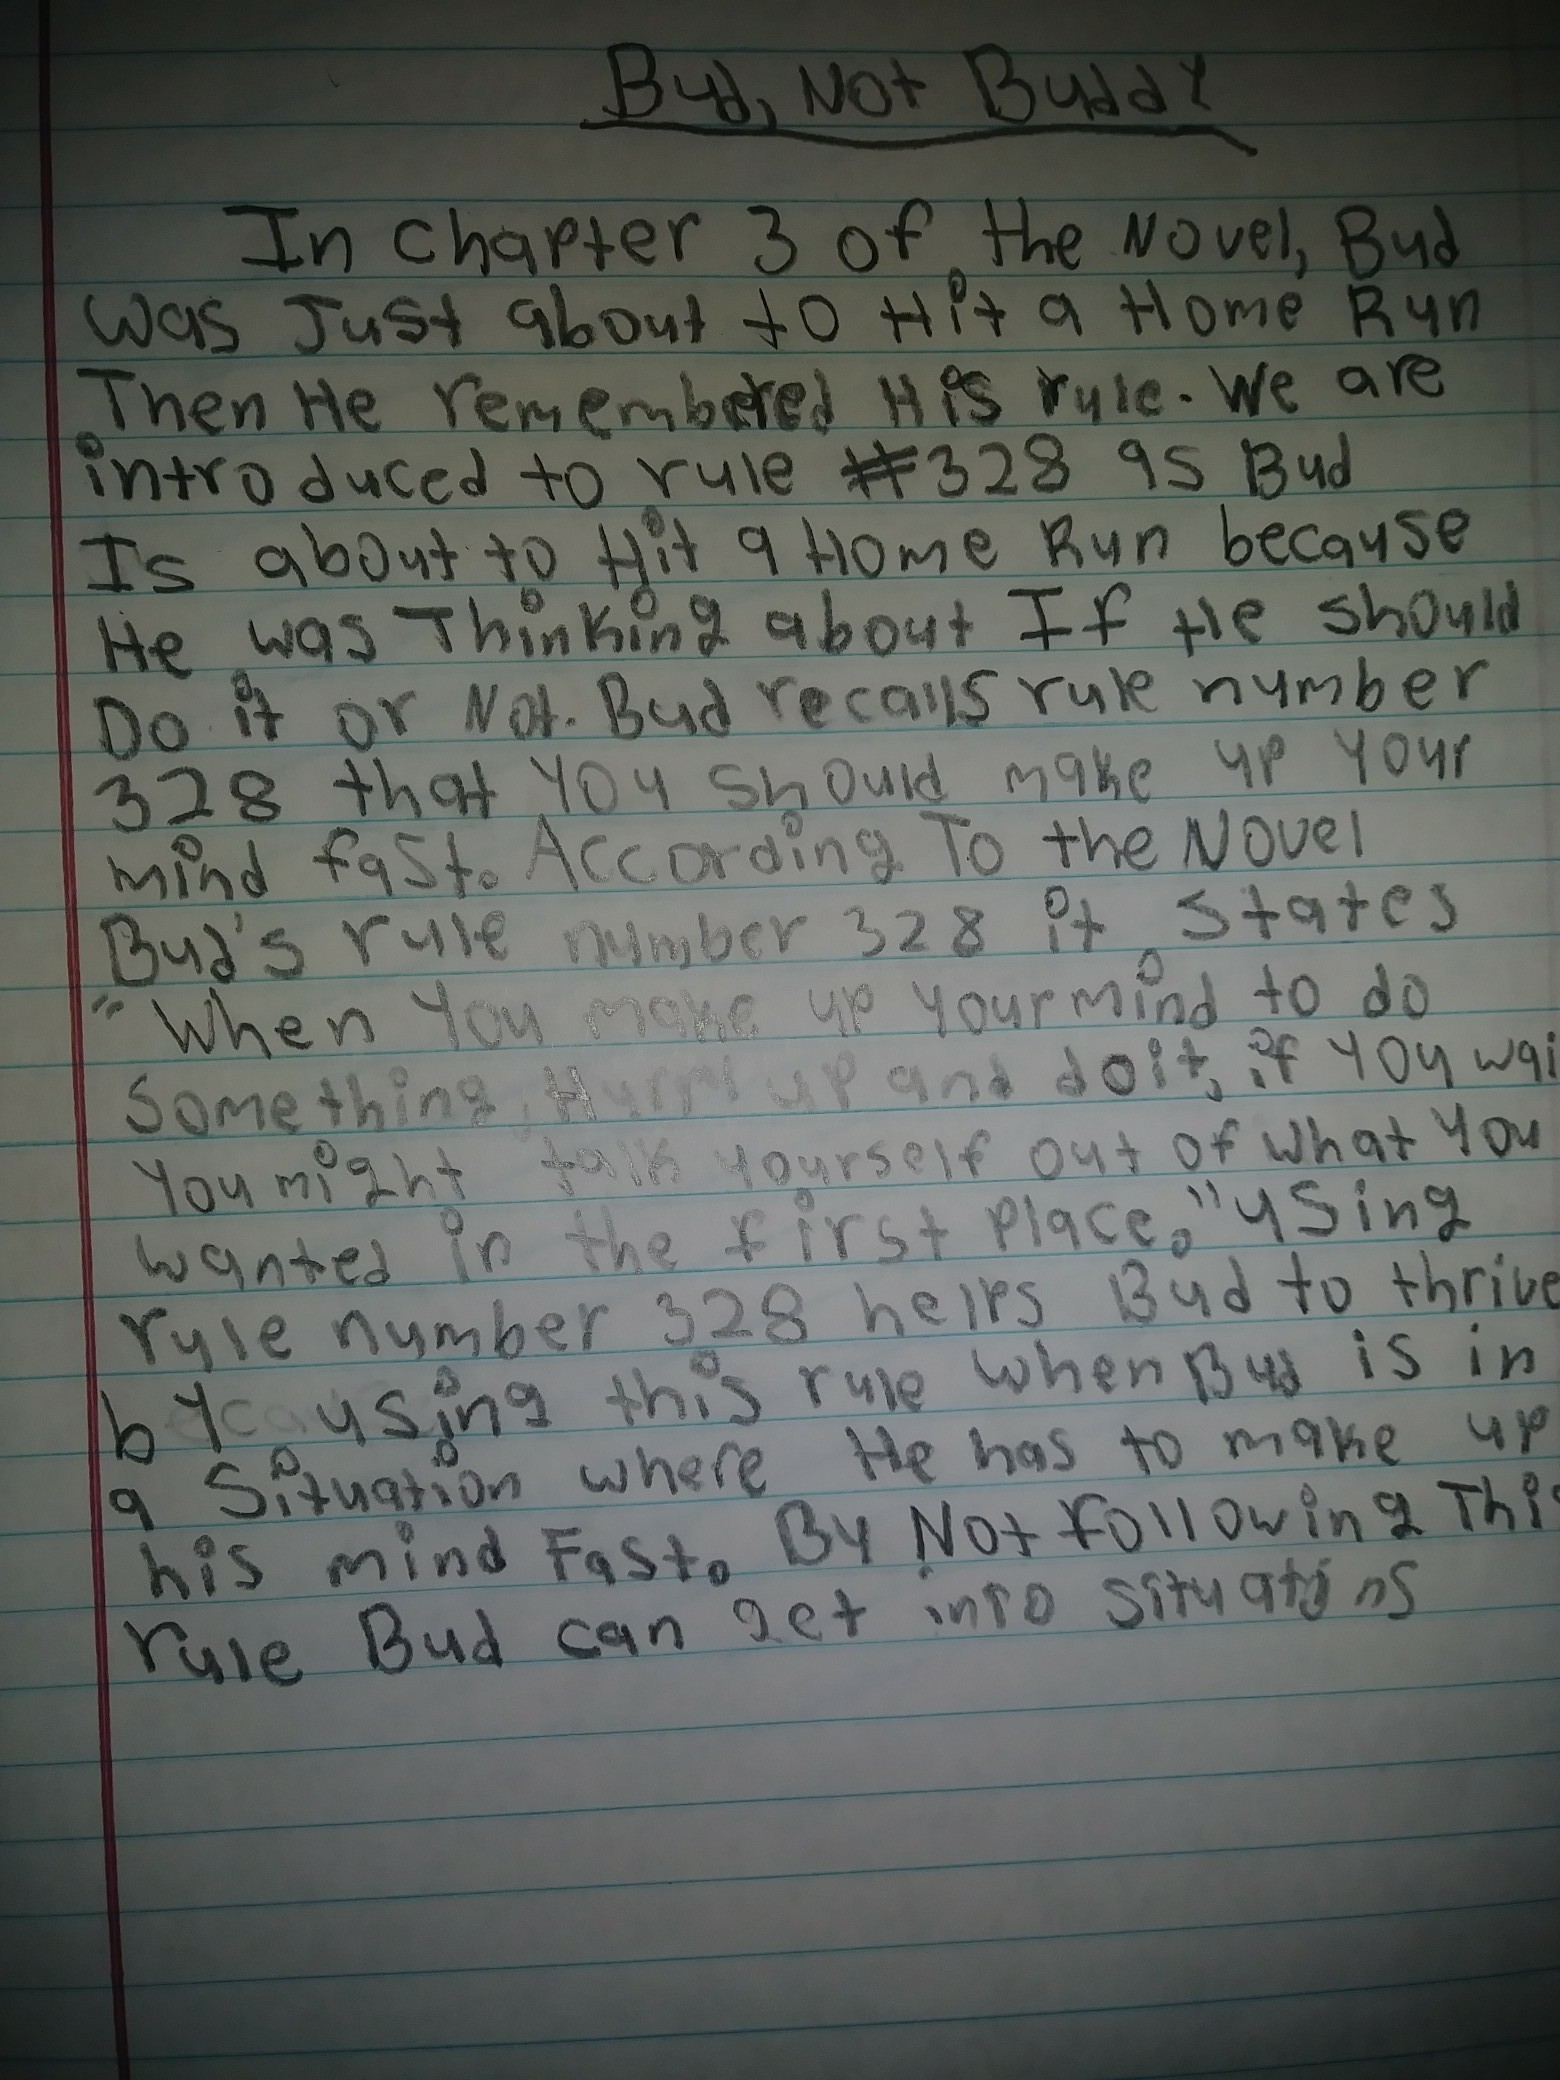 Bud, Not Buddy
In chapter 3 of the Novel, Bud
was Just about to Hit a Home Run
Then He remembered His rule. We are
introduced to rule #328 as Bud
Is about to Hit a Home Run because
He was Thinking about If He should
Do it or Not. Bud recalls rule number
328 that you should make up your
mind fast. According To the Novel
Bud's rule number 328 it States
"When You make up your mind to do
Something, Hurry up and do it, if you wai
You might talk yourself out of what you
wanted in the first place." using
rule number 328 helps Bud to thrive
by using this rule when Bud is in
a Situation where He has to make up
his mind Fast. By Not Following Thi
rule Bud can get into situations